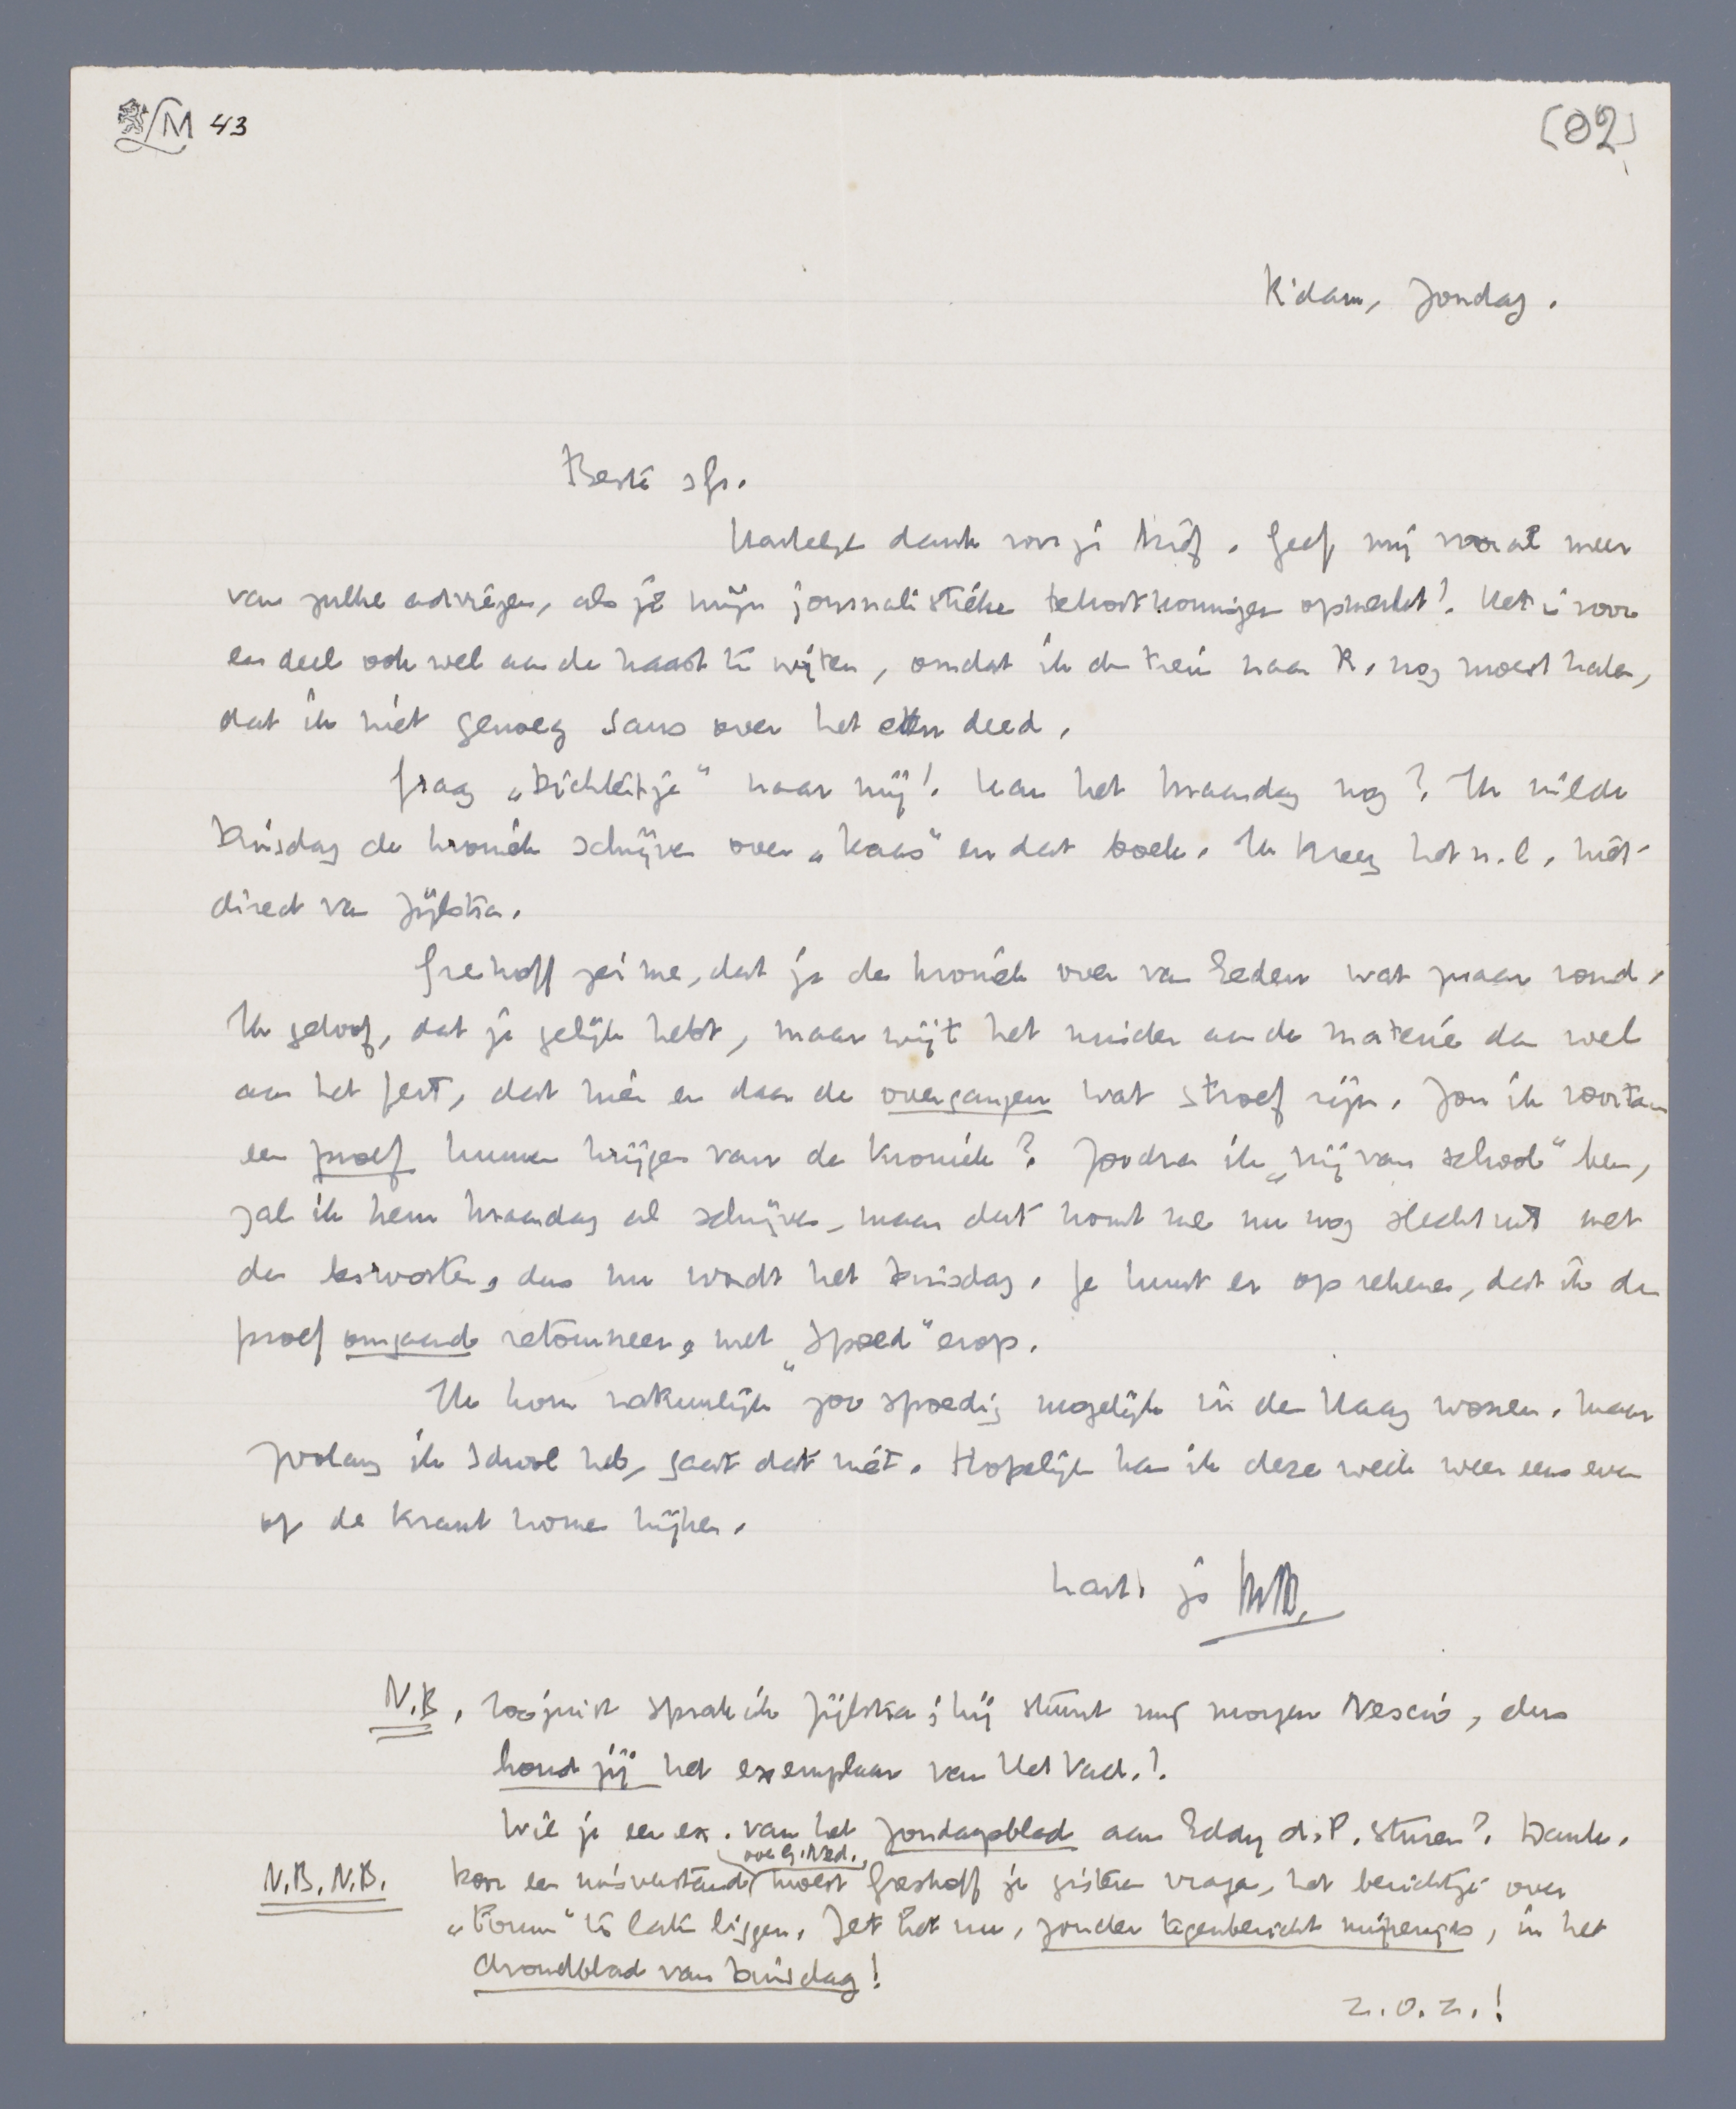 LM 43
(02)
R'dam, Zondag.
Beste Gr.
Hartelijk dank voor je brief. Geef mij vooral meer
van zulke adviezen, als je mijn journalistieke tekortkomingen opmerkt! Het is voor
een deel ook wel aan de haast te wijten, omdat ik de trein naar R. nog moest halen,
dat ik niet genoeg saus over het eten deed.
Graag „Dichtertje” naar mij! Kan het Maandag nog? Ik wilde
Dinsdag de kroniek schrijven over „Kaas” en dat boek. Ik kreeg het n.l. niet
direct van Zijlstra.
Greshoff zei me, dat je de kroniek over van Eeden wat zwaar vond.
Ik geloof, dat je gelijk hebt, maar wijt het minder aan de materie dan wel
aan het feit, dat hier en daar de overgangen wat stroef zijn. Zou ik voortaan
een proef kunnen krijgen van de kroniek? Zoodra ik „vrij van school” ben,
zal ik hem Maandag al schrijven, maar dat komt me nu nog slecht uit met
de lesrooster, dus nu wordt het Dinsdag. Je kunt er op rekenen, dat ik de
proef omgaand retourneer, met „Spoed” erop.
Ik kom natuurlijk zoo spoedig mogelijk in den Haag wonen. Maar
zoolang ik school heb, gaat dat niet. Hopelijk kan ik deze week weer eens even
op de krant komen kijken.
hart. je MtB.
N.B. Zoojuist sprak ik Zijlstra; hij stuurt mij morgen Nescio, dus
houd jij het exemplaar van Het Vad.!
Wil je een ex. van het Zondagsblad aan Eddy d. P. sturen? Dank.
N.B. N.B. Door een misverstand moest Greshoff je gisteren vragen, het berichtje over
„Forum” te laten liggen. Zet het nu, zonder tegenbericht mijnerzijds, in het
Avondblad van Dinsdag!
z.o.z.!